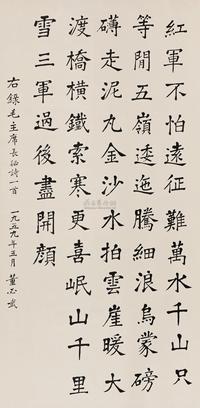 紅軍不怕遠征難萬水千山只
等閒五嶺逶迤騰細浪烏蒙磅
礴走泥丸金沙水拍雲崖暖大
渡橋橫鐵索寒更喜岷山千里
雪三軍過後盡開顏
右錄毛主席長征詩一首 一九五九年三月 董必武